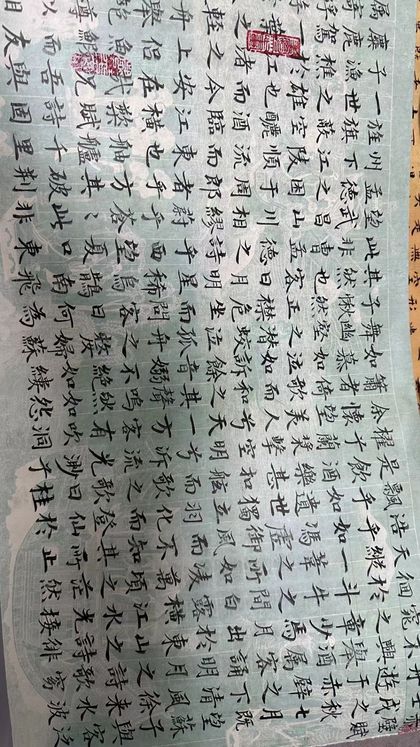 戌之秋七月既望蘇子與客泛
舟遊於赤壁之下清風徐來水波
不興舉酒屬客誦明月之詩歌窈
窕之章少焉月出於東山之上徘
徊於斗牛之間白露橫江水光接
天縱一葦之所如凌萬頃之茫然
浩浩乎如馮虛御風而不知其所止
飄飄乎如遺世獨立羽化而登仙於
是飲酒樂甚扣舷而歌之歌曰桂
棹兮蘭槳擊空明兮泝流光渺渺
余懷兮望美人兮天一方客有吹洞
簫者倚歌而和之其聲嗚嗚然
如怨如慕如泣如訴餘音嫋嫋不絕如縷
舞幽壑之潛蛟泣孤舟之嫠婦蘇
子愀然正襟危坐而問客曰何為
其然也客曰月明星稀烏鵲南飛
此非曹孟德之詩乎西望夏口東
望武昌山川相繆鬱乎蒼蒼此非
孟德之困於周郎者乎方其破荊
州下江陵順流而東也舳艫千里
旌旗蔽空釃酒臨江橫槊賦詩固
一世之雄也而今安在哉況吾與
子漁樵於江渚之上侶魚蝦而友
麋鹿駕一葉之扁舟舉匏樽以相
屬寄